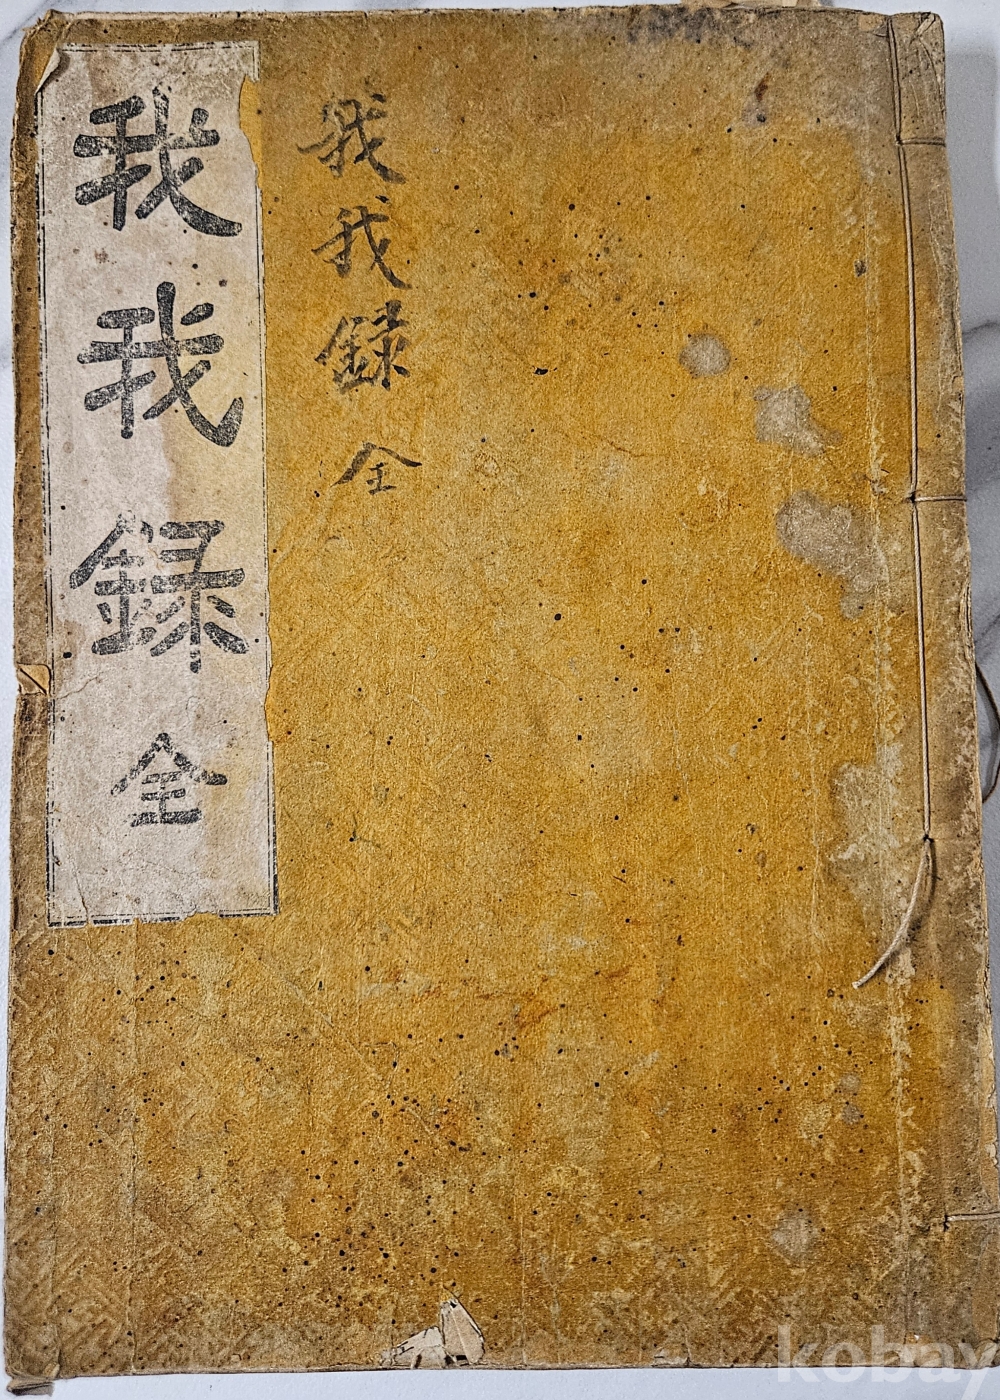 我我錄 全
我我錄 全
kobay